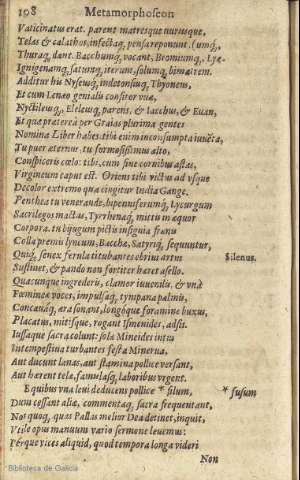 198 Metamorphoseon
Vaticinatus erat. parent matresque nurusque,
Telas & calathos, infectaq; pensa reponunt.
Thuraq; dant. Bacchumq; vocant, Bromiumq;, Lyæ-
Ignigenamq;, satumq; iterum, solumq; bimatrem.
Additur his Nyseusq; indetonsusq; Thyoneus,
Et cum Lenæo genialis consitor vuæ,
Nycteliusq;, Eleleusq; parens, & Iacchus, & Euan,
Et quæ præterea per Graias plurima gentes
Nomina Liber habes. tibi enim inconsumpta iuuēta,
Tu puer æternus, tu formosissimus alto,
Conspiceris cœlo: tibi, cum sine cornibus astas,
Virgineum caput est. Oriens tibi victus ad vsque
Decolor extremo qua cingitur India Gange.
Penthea tu venerande, bipenniferumq; Lycurgum
Sacrilegos mactas, Tyrrhenaq; mittis in æquor
Corpora. tu biiugum pictis insignia frænis
Colla premis lyncum, Bacchæ, Satyriq; sequuntur,
Quiq; senex ferula titubantes ebrius artus Silenus.
Sustinet, & pando non fortiter hæret asello.
Quacunque ingrederis, clamor iuuenilis, & vnà
Fœmineæ voces, impulsaq; tympana palmis,
Concauaq; æra sonant, longoque foramine buxus.
Placatus, mitisque, rogant Ismenides, adsis.
Iussaque sacra colunt: solæ Mineides intus
Intempestiua turbantes festa Minerua.
Aut ducunt lanas, aut stamina pollice versant,
Aut hærent telæ, famulasq; laboribus vrgent.
E quibus vna leui deducens pollice * filum, * fusum
Dum cessant aliæ, commentaq; sacra frequentant,
Nos quoq; quas Pallas melior Dea detinet, inquit,
Vtile opus manuum vario sermone leuemus:
Perque vices aliquid, quod tempora longa videri
Non
Biblioteca de Galicia